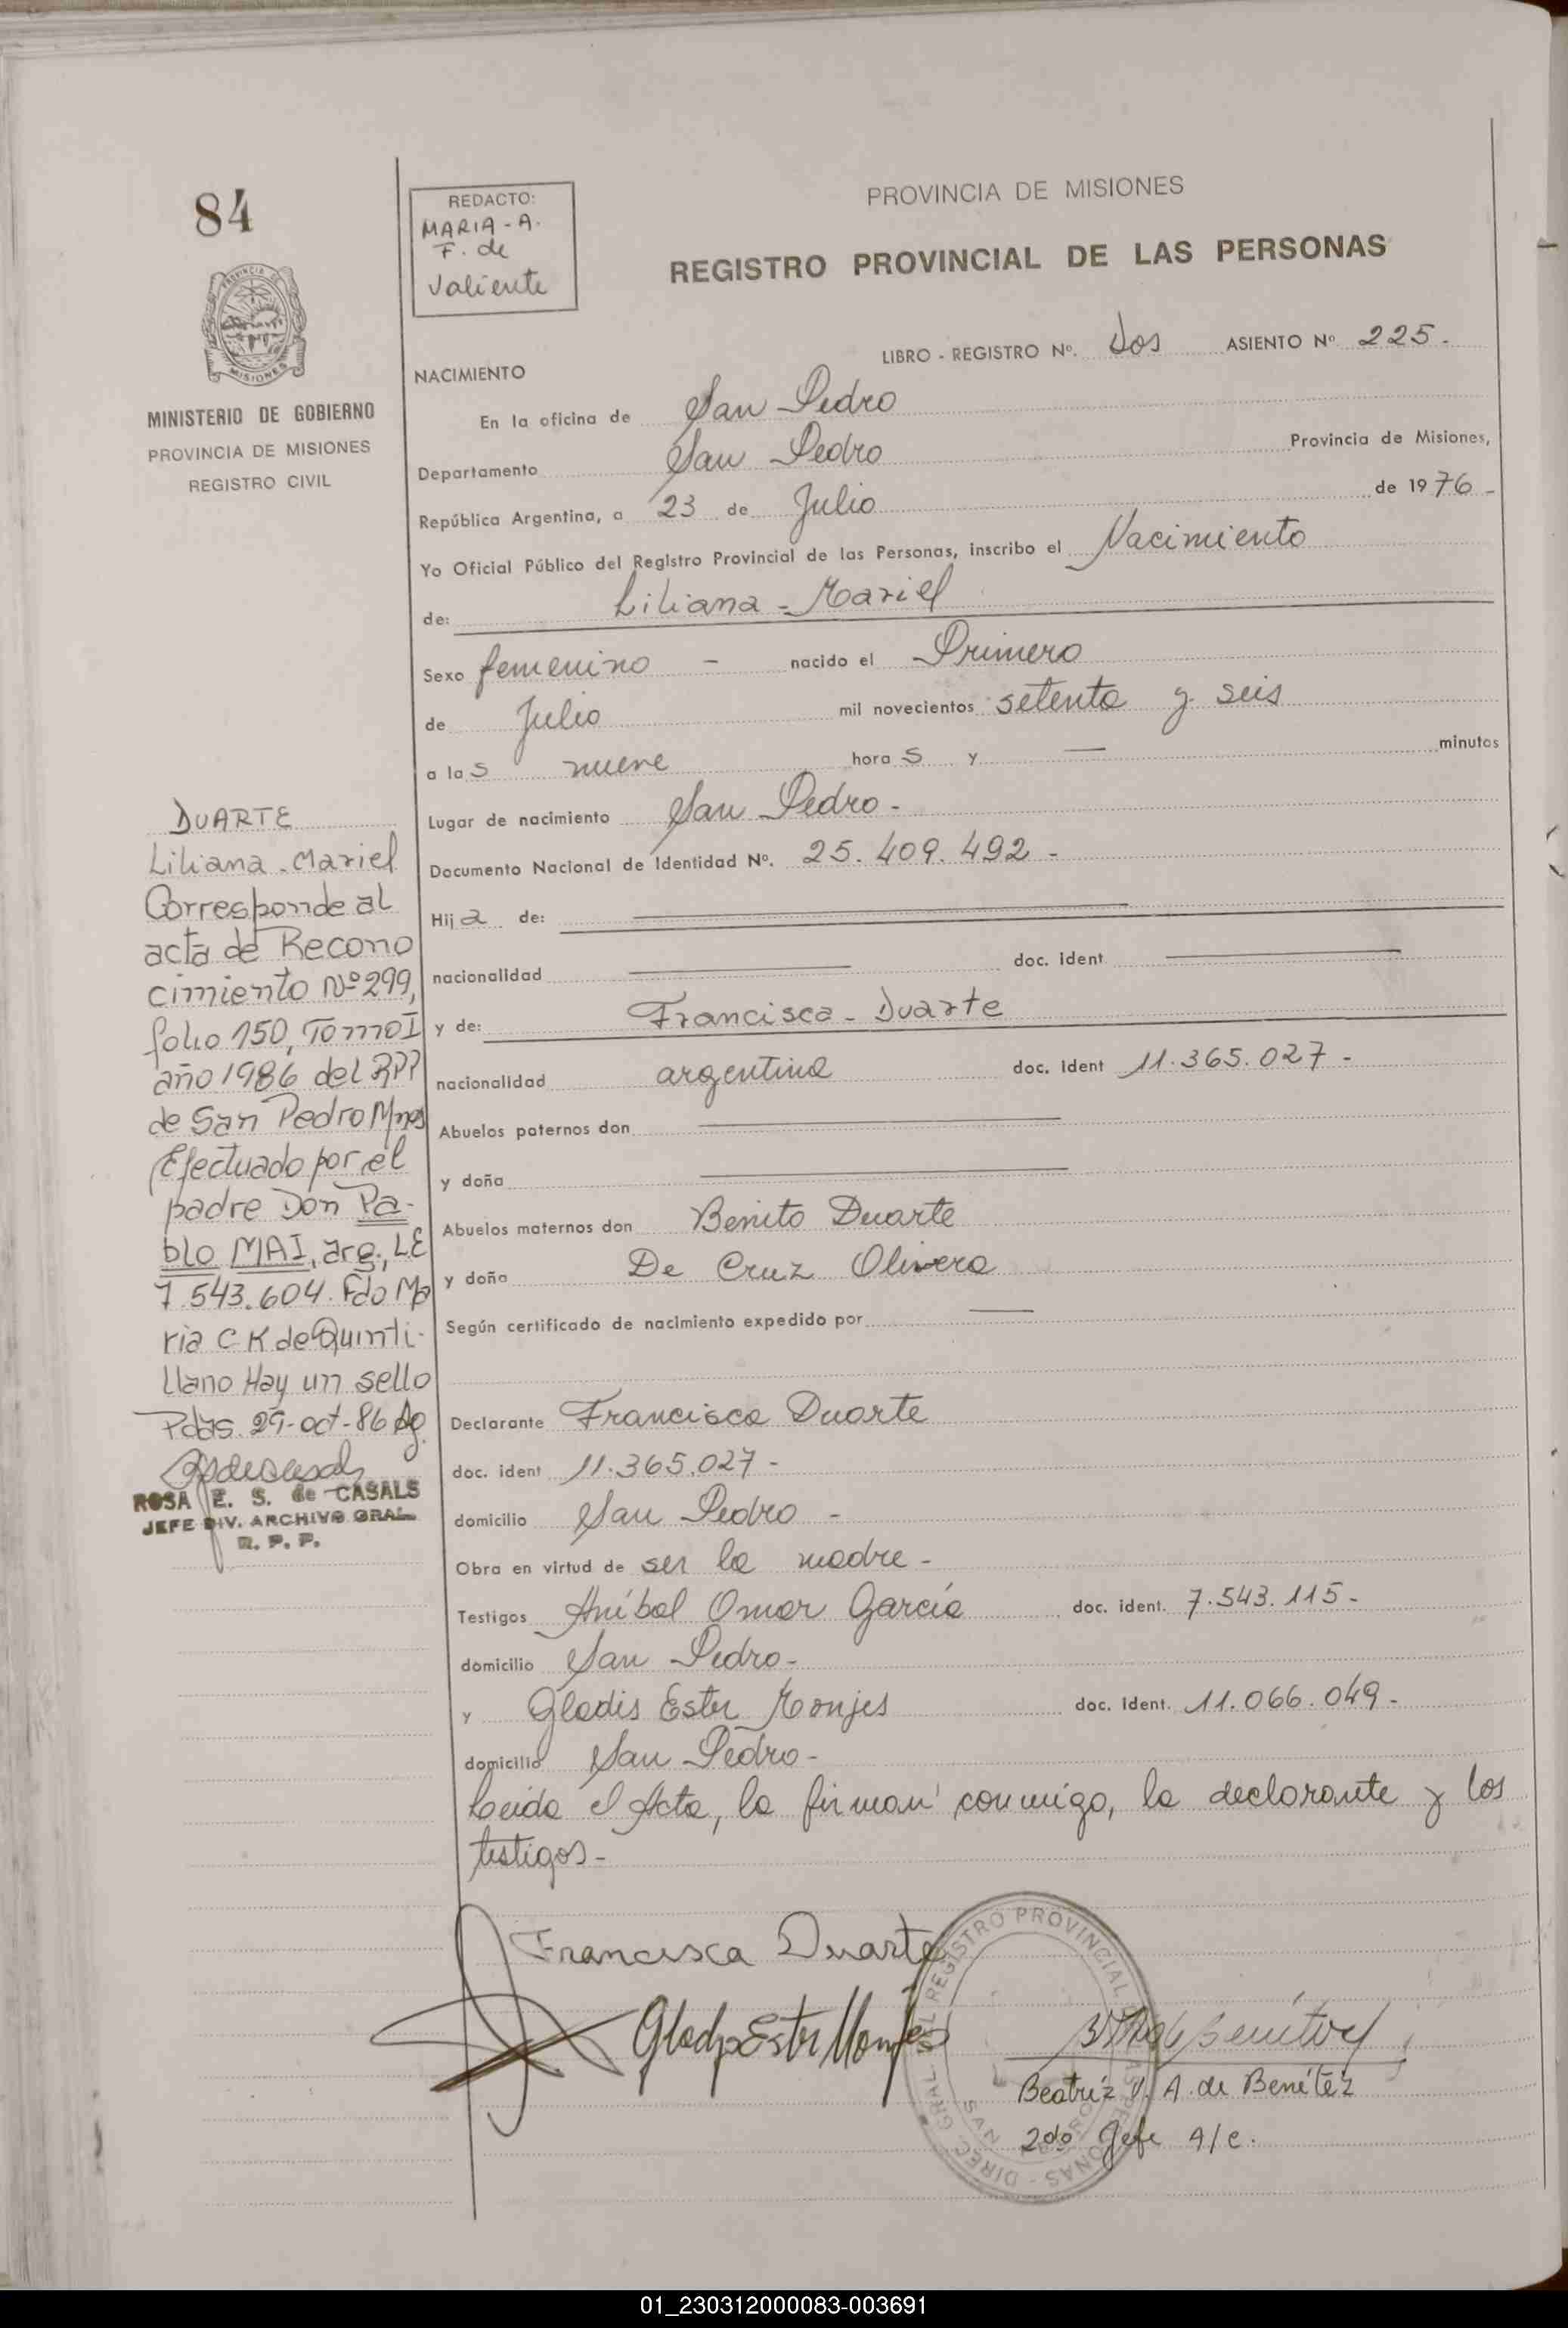 84
PROVINCIA DE
MISIONES
MINISTERIO DE GOBIERNO
PROVINCIA DE MISIONES
REGISTRO CIVIL
REDACTO:
MARIA - A.
F. de
Valiente
PROVINCIA DE MISIONES
REGISTRO PROVINCIAL DE LAS PERSONAS
LIBRO - REGISTRO Nº. Dos ASIENTO Nº 225.-
NACIMIENTO
En la oficina de San Pedro
Departamento San Pedro Provincia de Misiones,
República Argentina, a 23 de Julio de 1976 -
Yo Oficial Público del Registro Provincial de las Personas, inscribo el Nacimiento
de: Liliana - Mariel
Sexo femenino - nacido el Primero
de Julio mil novecientos setenta y seis
a las nueve horas y — minutos
Lugar de nacimiento San Pedro -
Documento Nacional de Identidad Nº. 25.409.492 -
Hija de: —
nacionalidad — doc. ident —
y de: Francisca - Duarte
nacionalidad argentina doc. ident 11.365.027 -
Abuelos paternos don —
y doña —
Abuelos maternos don Benito Duarte
y doña De Cruz Olivera
Según certificado de nacimiento expedido por —
Declarante Francisca Duarte
doc. ident 11.365.027 -
domicilio San Pedro -
Obra en virtud de ser la madre -
Testigos Aníbal Omar García doc. ident. 7.543.115 -
domicilio San Pedro -
y Gladis Ester Monjes doc. ident. 11.066.049 -
domicilio San Pedro -
Leida el Acta, la firman conmigo, la declarante y los
testigos -
DUARTE
Liliana - Mariel
Corresponde al
acta de Recono
cimiento Nº 299,
folio 150, Tomo I
año 1986 del RPP
de San Pedro Mnes
Efectuado por el
padre Don Pa-
blo MAI, arg., LE
7.543.604. Fdo Ma
ria C K de Quinti-
llano Hay un sello
Pdas. 29-oct-86
ROSA E. S. de CASALS
JEFE DIV. ARCHIVO GRAL
R. P. P.
Francisca Duarte
Gladys Ester Monjes
DIREC. GRAL DEL REGISTRO PROVINCIAL DE LAS PERSONAS
SAN PEDRO
Beatríz V. A. de Benítez
2do Jefe A/c.
01_230312000083-003691